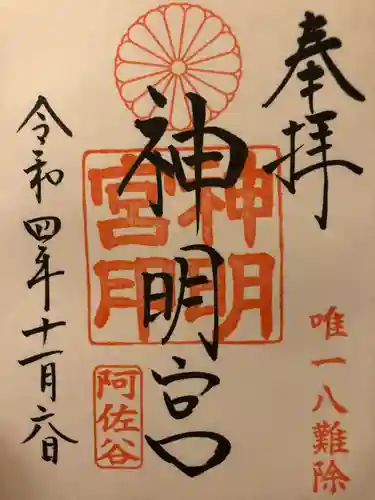 奉拝
唯一八難除
神明宮
神明
宮印
阿佐谷
令和四年十一月六日